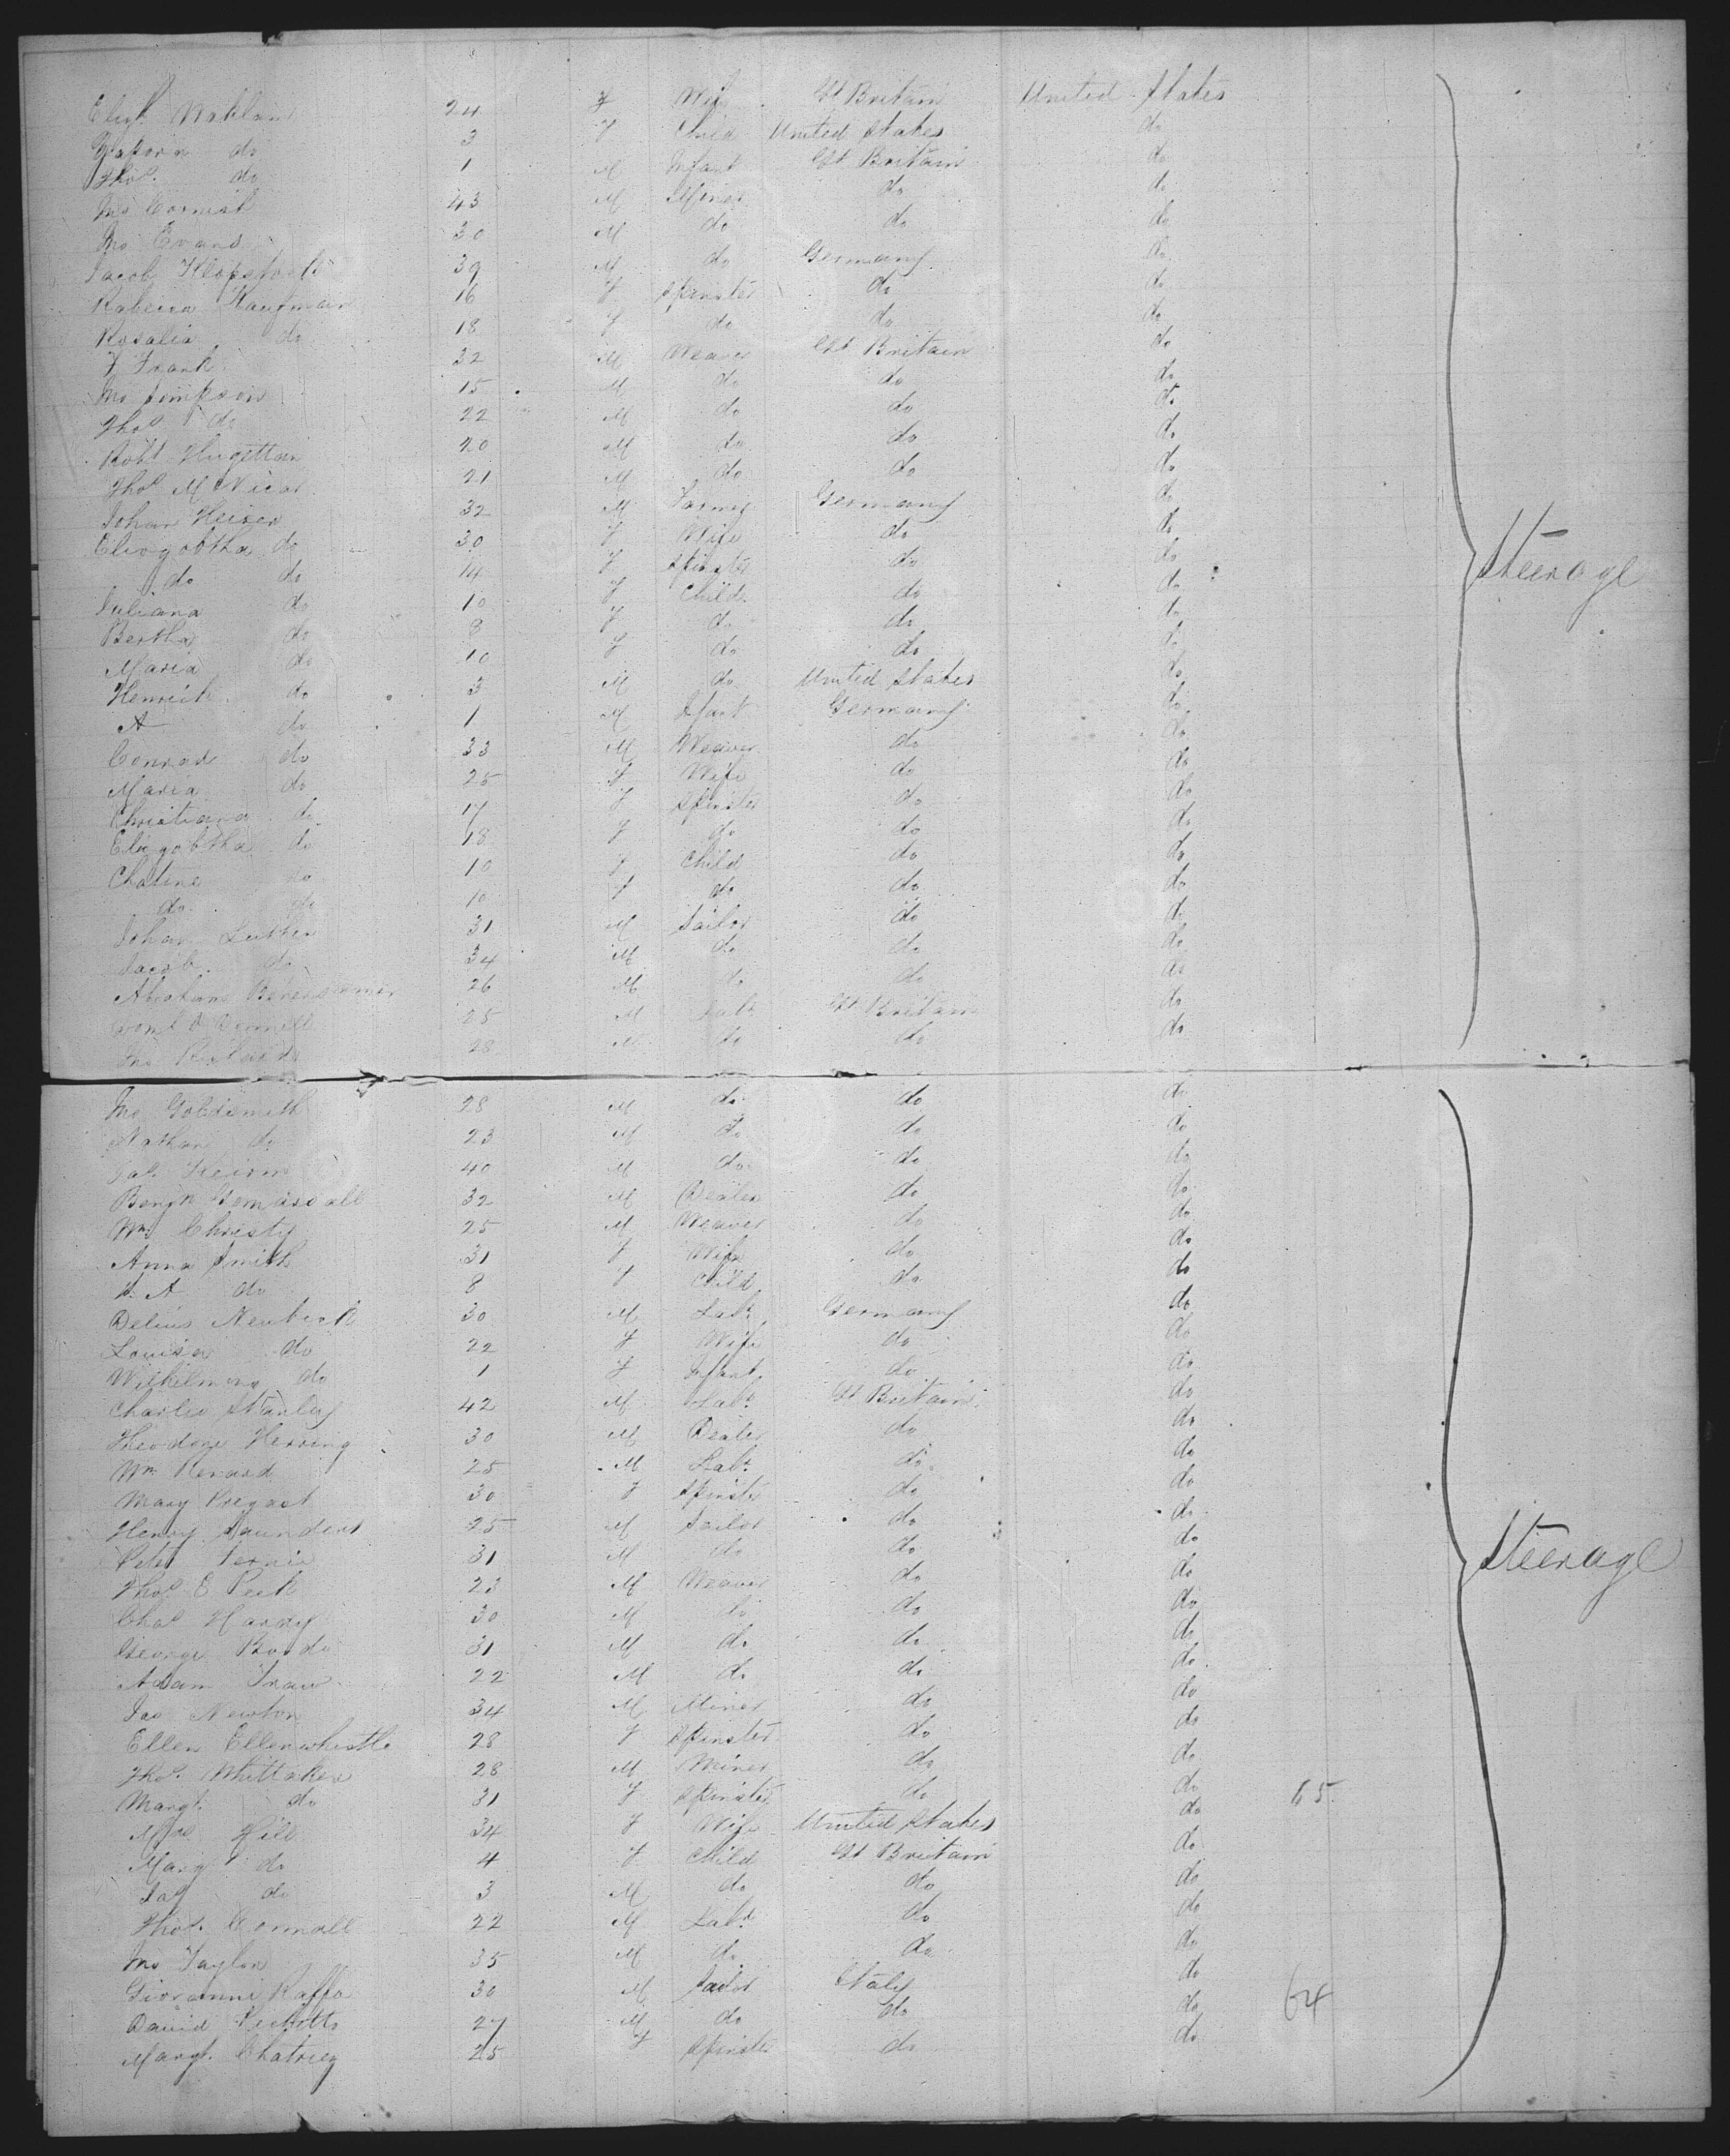 Elizh. Wohland 24 F Wife Gt Britain United States
do 3 F Child United States do
Thos. do 1 M Infant Gt Britain do
Jno Cornish 43 M Miner do do
Jno Evans 30 M do do do
Jacob 39 M do Germany do
Rabecca Kaufman 16 F Spinster do do
Rosalia do 18 F do do do
F Frank 32 M Weaver Gt Britain do
Jno Simpson 15 M do do do
Thos do 22 M do do do
Robt Hugettan 20 M do do do
Thos McVicar 21 M do do do
Johan Heiser 32 M Farmer Germany do
Elizgobtha do 30 F Wife do do
do do 14 F Spinster do do
Juliana do 10 F Child do do
Bertha do 8 F do do do
Maria do 10 F do do do
Henrich do 3 M do United States do
A do 1 M Infant Germany do
Conrad do 33 M Weaver do do
Maria do 25 F Wife do do
Christiana do 17 F Spinster do do
Elizgobtha do 18 F do do do
Chatine do 10 F Child do do
do do 10 F do do do
Johan Luther 31 M Tailor do do
Jacob do 34 M do do do
Abraham 26 M do do do
25 M Labr Gt Britain do
Jno Richards 28 M do do do
Steerage
Jno Goldsmith 28 M do do do
Nathan do 23 M do do do
Jas. 40 M do do do
Benjn 32 M Dealer do do
Wm Christy 25 M Weaver do do
Anna Smith 31 F Wife do do
A do 8 F Child do do
Delius Neubeck 30 M Labr Germany do
Louisa do 22 F Wife do do
Wilhilmina do 1 F Infant do do
Charles Stanley 42 M Labr Gt Britain do
Theodore Herring 30 M Dealer do do
Wm Renard 25 M Labr. do do
Mary Pregast 30 F Spinster do do
Henry Saunders 25 M Tailor do do
Peter 31 M do do do
Thos E Peek 23 M Weaver do do
Chas Hardy 30 M do do do
George 31 M do do do
Adam 22 M do do do
Jas Newton 34 M Miner do do
Ellen Ellenwhistle 28 F Spinster do do
Thos. Whittaker 28 M Miner do do
Margt. do 31 F Spinster do do 65
Mrs Hill 34 F Wife United States do
Margt do 4 F Child Gt Britain do
Jas do 3 M do do do
Thos. Connall 22 M Labr do do
Jno Taylor 35 M do do do
Giovanni Raffo 30 M Tailor Italy do
David 27 M do do do 64
Margt. Chatriez 25 F Spinster do do
Steerage